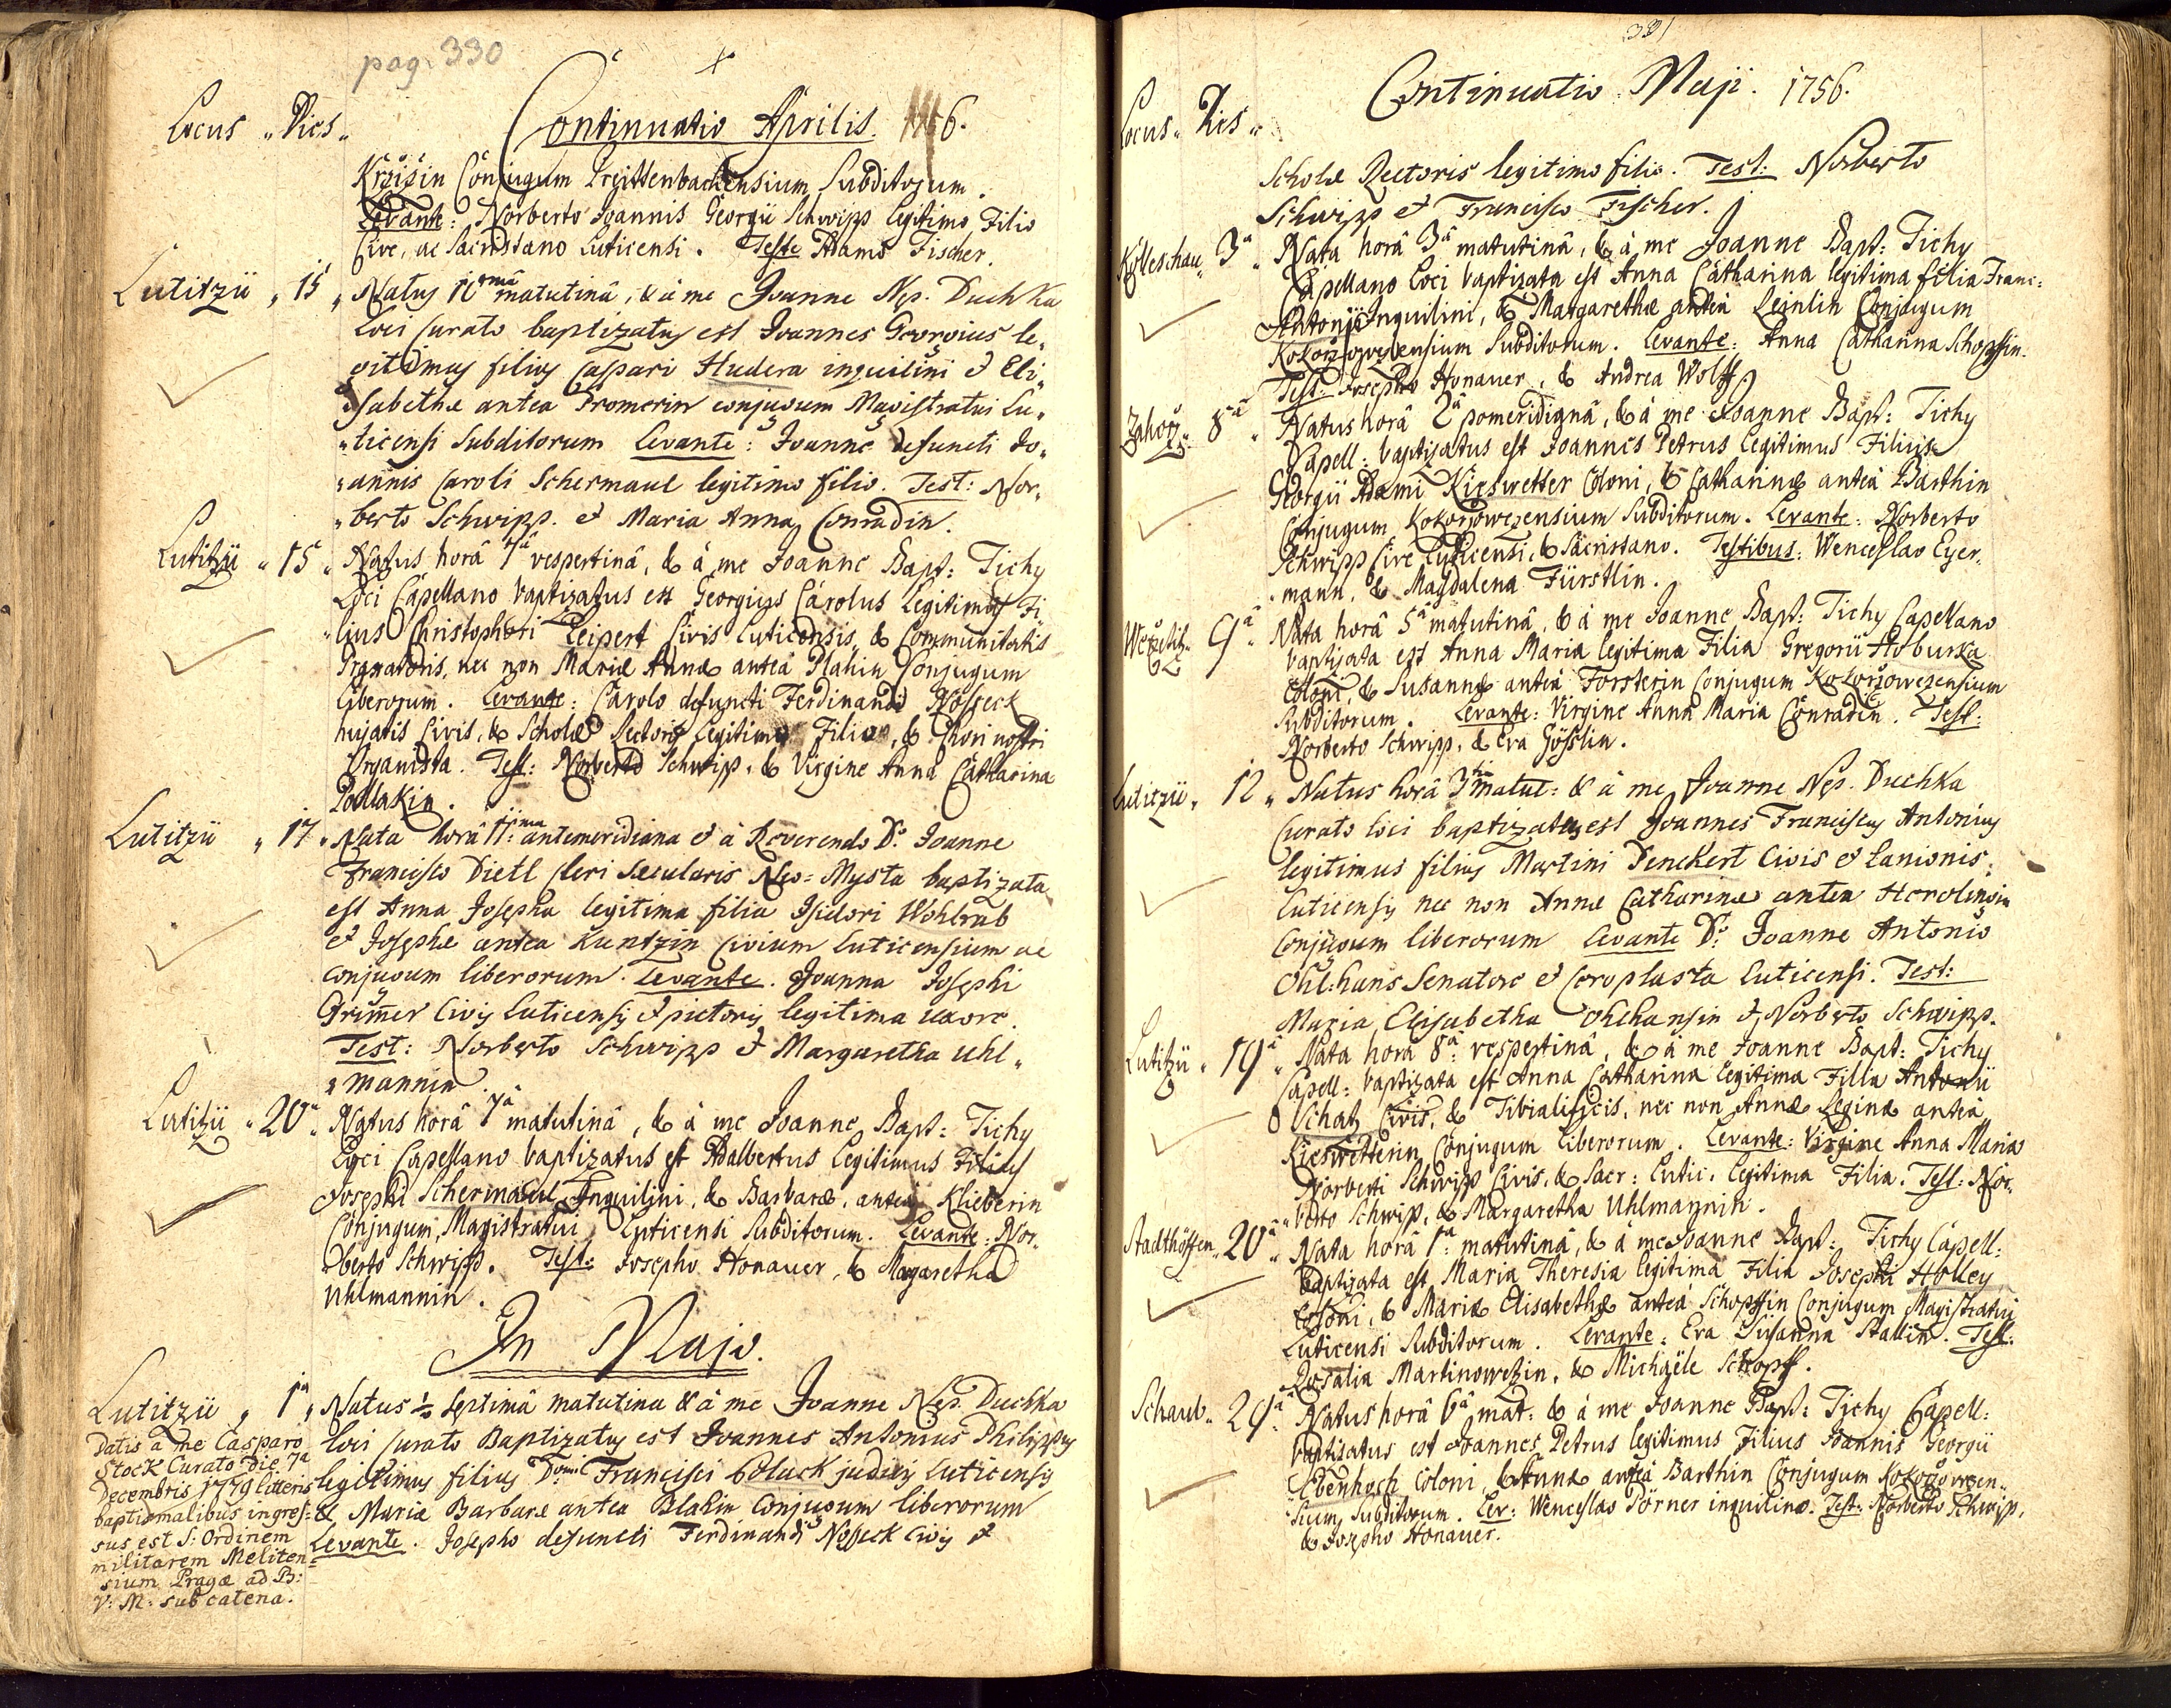 pag. 330
Locus „ Dies „
Continuatio Aprilis. 1756.
Kržižin Conjugum Subditorum.
Levante: Norberto Joannis Georgii Schwipp legitimo Filio
Cive, ac Sacristano Luticensi. Teste Adamo Fischer.
Lutitzii „ 15 „ Natus matutinâ, & à me Joanne Nep. Duchka
Loci Curato baptizatus est Joannes Georgius le„
gitimus filius Caspari Hudera inquilini et Eli„
„sabethæ antea Promerin conjugum Magistratui Lu„
„ticensi Subditorum Levante: Joanne defuncti Jo„
„annis Caroli Schermaul legitimo filio. Test: Nor„
„berto Schwipp. et Maria Anna Conradin.
Lutitzii „ 15 „ Natus horâ 7â vespertinâ, & à me Joanne Bapt: Tichy
Loci Capellano baptizatus est Georgius Carolus legitimus Fi„
„lius Christophori Leipert Civis Luticensis, & Communitatis
nec non Mariæ Annæ anteà Plahin Conjugum
liberorum. Levante: Carolo defuncti Ferdinandi Nosseck
hujatis Civis, & Scholæ Rectoris legitimo Filio, & Chori nostri
Organista. Test: Norberto Schwipp, & Virgine Anna Catharina
Podlakin.
Lutitzii „ 17 „ Nata horâ 11ma antemeridiana et à Reverendo D: Joanne
Francisco Dietl Cleri Sæcularis Neo-Mysta baptizata
est Anna Josepha legitima filia Isidori Wohlrab
et Josephæ antea Kuntzin Civium Luticensium ac
conjugum liberorum. Levante. Joanna Josephi
Grimmer Civis Luticensis et pictoris legitima uxore.
Test: Norberto Schwipp et Margaretha Uhl„
„mannin
Lutitzii „ 20â „ Natus horâ 7â matutinâ, & à me Joanne Bapt: Tichy
Loci Capellano baptizatus est Adalbertus legitimus Filius
Josephi Schermaul Inquilini, & Barbaræ, anteà Klieberin
Conjugum, Magistratui Luticensi Subditorum. Levante: Nor„
„berto Schwipp. Test: Josepho Honauer, & Margaretha
Uhlmannin.
In Majo.
Lutitzii „ 1â „ Natus ½ septimâ matutina & à me Joanne Nep. Duchka
loci Curato Baptizatus est Joannes Antonius Philippus
legitimus filius Domi Francisci Poluck judicis Luticensis
& Mariæ Barbaræ antea Blahin Conjugum liberorum
Levante. Josepho defuncti Ferdinandi Nosseck Civis et
Datis à me Casparo
Stock Curato die 7â
Decembris 1779 litteris
baptismalibus ingres=
sus est S: Ordinem
militarem Meliten=
sium Pragæ ad B:
V: M: sub catena.
331
Locus „ Dies „
Continuatio Maji. 1756.
Scholæ Rectoris legitimo filio. Test: Norberto
Schwipp et Francisco Fischer.
Kolleschau „ 3â „ Nata horâ 3â matutinâ, & à me Joanne Bapt: Tichy
Capellano Loci baptizata est Anna Catharina legitima filia Franc:
Antonii Inquilini, & Margarethæ anteà Leinlin Conjugum
Kokoržowezensium Subditorum. Levante: Anna Catharina Schopffin.
Test. Josepho Honauer, & Andrea Wolff.
Zahorž „ 8â „ Natus horâ 2â pomeridianâ, & à me Joanne Bapt: Tichy
Capell: baptizatus est Joannes Petrus legitimus Filius
Georgii Adami Kieswetter Coloni, & Catharinæ anteà Barthin
Conjugum Kokoržowezensium Subditorum. Levante: Norberto
Schwipp Cive Luticensi, & Sacristano. Testibus: Wenceslao Eyer„
„mann, & Magdalena Fürstlin.
9â „ Nata horâ 5â matutinâ, & à me Joanne Bapt: Tichy Capellano
baptizata est Anna Maria legitima Filia Gregorii Hoburka
Coloni, & Susannæ anteà Forsterin Conjugum Kokoržowezensium
Subditorum. Levante: Virgine Anna Maria Conradin. Test:
Norberto Schwipp, & Eva Gösslin.
Lutitzii „ 12 „ Natus horâ 3tia matut: & à me Joanne Nep. Duchka
Curato loci baptizatus est Joannes Franciscus Antonius
legitimus filius Martini Denckert Civis et Lanionis
Luticensis nec non Annæ Catharinæ antea
Conjugum liberorum Levante D: Joanne Antonio
Ohl:hans Senatore et Ceroplasta Luticensi. Test:
Maria Elisabetha Ohlhansin et Norberto Schwipp.
Lutitzii „ 19â „ Nata horâ 8â: vespertinâ, & à me Joanne Bapt: Tichy
Capell: baptizata est Anna Catharina legitima Filia Antonii
Schatz Civis, & Tibialificis, nec non Annæ Reginæ anteà
Kieswetterin Conjugum liberorum. Levante: Virgine Anna Maria
Norberti Schwipp Civis, & Sacr: Lutic: legitima Filia. Test: Nor„
„berto Schwipp, & Margaretha Uhlmannin.
Stadthöffen „ 20â „ Nata horâ 1â: matutinâ, & à me Joanne Bapt: Tichy Capell:
baptizata est Maria Theresia legitima Filia Josephi Holley
Coloni, & Mariæ Elisabethæ anteà Schopffin Conjugum Magistratui
Luticensi Subditorum. Levante: Eva Susanna Stallin. Test:
Rosalia Martinowetzin, & Michaële Schopff.
Schaub „ 29â „ Natus horâ 6â mat: & à me Joanne Bapt: Tichy Capell:
baptizatus est Joannes Petrus legitimus Filius Joannis Georgii
Ebenhoch Coloni, & Annæ anteà Barthin Conjugum Kokoržowezen„
„sium Subditorum. Lev: Wenceslao Dörner inquilino. Test: Norberto Schwipp,
& Josepho Honauer.